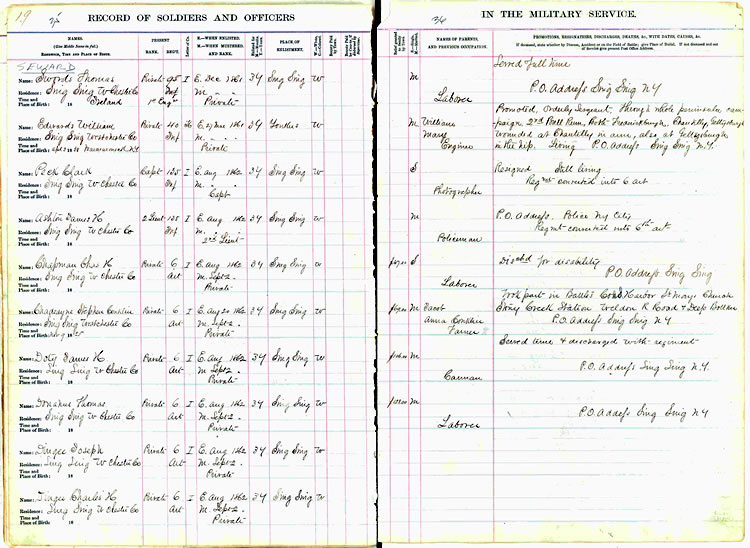 19
RECORD OF SOLDIERS AND OFFICERS
NAMES.
(Give Middle Name in full.)
RESIDENCE, DATE AND PLACE OF BIRTH.
PRESENT
RANK.
REGT.
Letter of Co.
E.—WHEN ENLISTED.
M.—WHEN MUSTERED,
AND RANK.
PLACE OF
ENLISTMENT.
SEWARD
Name: Swords Thomas Private 95 I E. Dec 1861 34 Sing Sing W
Residence: Sing Sing W Chester Co Inf M.
Time and Place of Birth: Ireland Private
Name: Edwards William Private 40 I E. 1861 34 Yonkers W
Residence: Sing Sing Westchester Co Inf M.
Time and Place of Birth: Private
Name: Peck Clark Capt 135 I E. Aug 1862 34 Sing Sing W
Residence: Sing Sing W Chester Co Inf M.
Time and Place of Birth: 18 Capt
Name: Ashton James H 2 Lieut 135 I E. Aug 1862 34 Sing Sing W
Residence: Sing Sing W Chester Co Inf M.
Time and Place of Birth: 18 2nd Lieut
Name: Chapman Chas H Private 6 I E. Aug 1862 34 Sing Sing W
Residence: Sing Sing W Chester Co Art M. Sept 2
Time and Place of Birth: 18 Private
Name: Stephen Private 6 I E. Aug 20 1862 34 Sing Sing W
Residence: Sing Sing Westchester Co Art M. Sept 2
Time and Place of Birth: Private
Name: Doty James H Private 6 I E. Aug 1862 34 Sing Sing W
Residence: Sing Sing W Chester Co Art M. Sept 2
Time and Place of Birth: 18 Private
Name: Donahue Thomas Private 6 I E. Aug 1862 34 Sing Sing W
Residence: Sing Sing W Chester Co Art M. Sept 2
Time and Place of Birth: 18 Private
Name: Dingee Joseph Private 6 I E. Aug 1862 34 Sing Sing W
Residence: Sing Sing W Chester Co Art M. Sept 2
Time and Place of Birth: 18 Private
Name: Dingee Charles H Private 6 I E. Aug 1862 34 Sing Sing W
Residence: Sing Sing W Chester Co Art M. Sept 2
Time and Place of Birth: 18 Private
IN THE MILITARY SERVICE.
NAMES OF PARENTS,
AND PREVIOUS OCCUPATION.
PROMOTIONS, RESIGNATIONS, DISCHARGES, DEATHS, &c., WITH DATES, CAUSES, &c.
If deceased, state whether by Disease, Accident or on the Field of Battle; give Place of Burial. If not deceased and out of Service give present Post Office Address.
Served full time
M
Laborer P.O. Address Sing Sing N.Y
Promoted, Orderly Sergeant. Through whole peninsula, cam-
M William paign, 2nd Bull Run, Both Fredericksburgh, Chantilly, Gettysburgh
Mary wounded at Chantilly in arm, also at Gettysburgh
Engine in the hip. Living P.O. Address Sing Sing N.Y.
S Resigned Still living
Photographer Regmt converted into 6 art
M P.O. Address. Police N.Y. City
Policeman Regmt converted into 6th art
S Discd for disability
Laborer P.O. Address Sing Sing
Took part in Battles Cold Harbor St Marys Church
M Jacob Stony Creek Station Weldon R Road & Deep Bottom
Anna P.O. Address Sing Sing N.Y
Farmer
M Served time & discharged with regiment
Carman P.O. Address Sing Sing N.Y.
M
Laborer P.O. Address Sing Sing N.Y